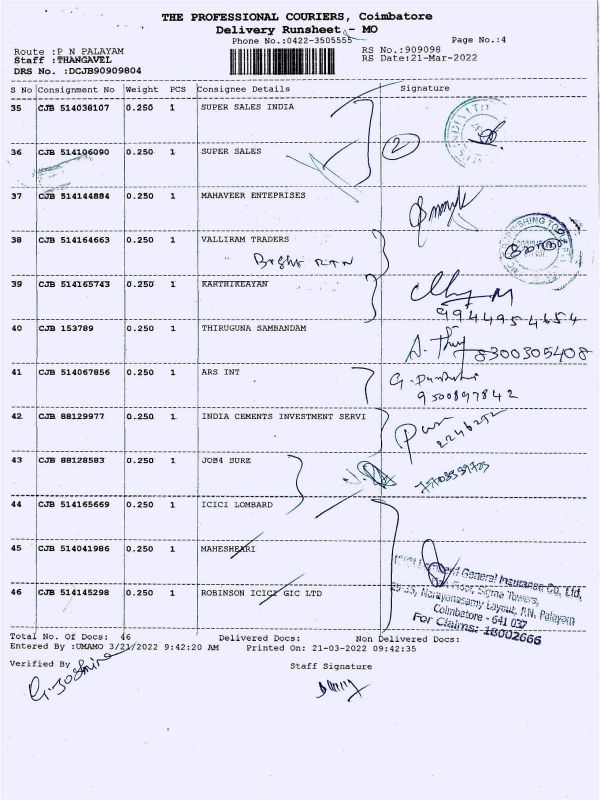 THE PROFESSIONAL COURIERS, Coimbatore
Delivery Runsheet - MO
Phone No.:0422-3505555 Page No.:4
Route :P N PALAYAM RS No.:909098
Staff :THANGAVEL RS Date:21-Mar-2022
DRS No. :DCJB90909804
S No Consignment No Weight PCS Consignee Details Signature
35 CJB 514038107 0.250 1 SUPER SALES INDIA
36 CJB 514106090 0.250 1 SUPER SALES 2
37 CJB 514144884 0.250 1 MAHAVEER ENTEPRISES
38 CJB 514164663 0.250 1 VALLIRAM TRADERS
39 CJB 514165743 0.250 1 KARTHIKEAYAN
9944954654
40 CJB 153789 0.250 1 THIRUGUNA SAMBANDAM
8300305408
41 CJB 514067856 0.250 1 ARS INT
9500897842
42 CJB 88129977 0.250 1 INDIA CEMENTS INVESTMENT SERVI
43 CJB 88128583 0.250 1 JOB4 SURE
44 CJB 514165669 0.250 1 ICICI LOMBARD
45 CJB 514041986 0.250 1 MAHESHEARI
General Insurance Co. Ltd,
Floor, Sigma Towers,
46 CJB 514145298 0.250 1 ROBINSON ICICI GIC LTD
Narayanasamy Layout, P.N. Palayam
Coimbatore - 641 037
For Claims: 18002666
Total No. Of Docs: 46 Delivered Docs: Non Delivered Docs:
Entered By :UMAMO 3/21/2022 9:42:20 AM Printed On: 21-03-2022 09:42:35
Verified By Staff Signature